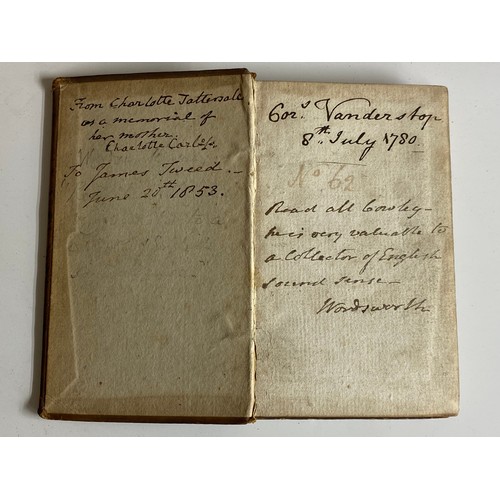 From Charlotte Tattersall
as a memorial of
her mother.
Charlotte
To James Tweed. –
June 20th 1853.
Cors. Vanderstop
8th. July 1780
No 62
Read all Cowley –
he is very valuable to
a Collector of English
sound sense –
Wordsworth